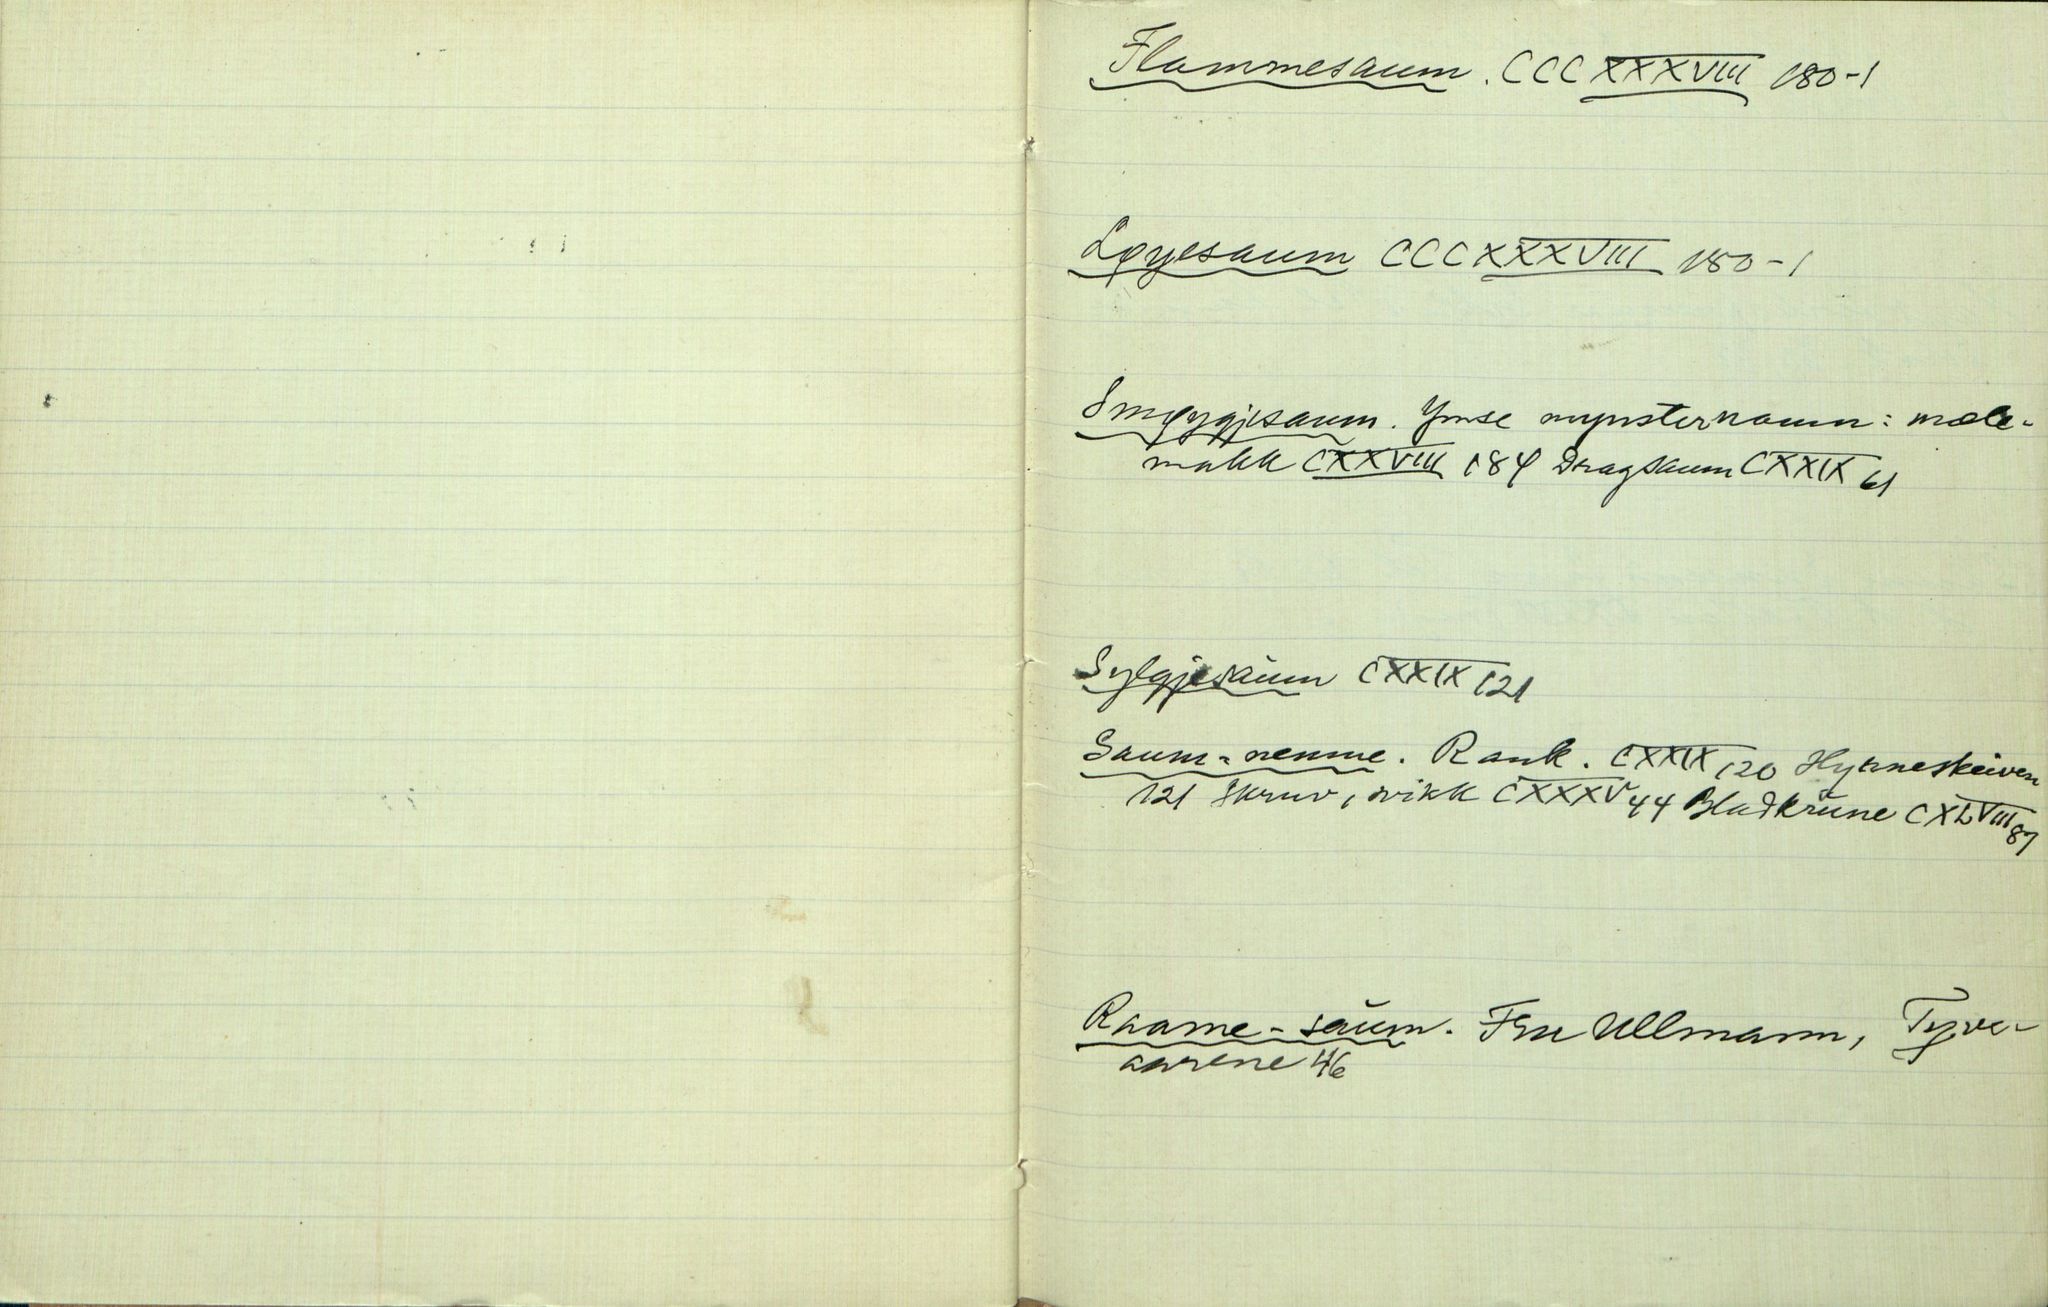 Flammesaum. CCCXXXVIII 180-1
Løyesaum CCCXXXVIII 180-1
Smøygjesaum. Ymse mynsternamn: mole-
makk CXXVIII 184 Dragsaum CXXIX 61
Sylgjesaum CXXIX 121
Saum-nemne. Rank. CXXIX 120 Hyrneskeiven
121 Skruv, svikk CXXXV 44 Bladkrune CXLVIII 87
Raame-saum. Fru Ullmann, Tyve-
aarene 46